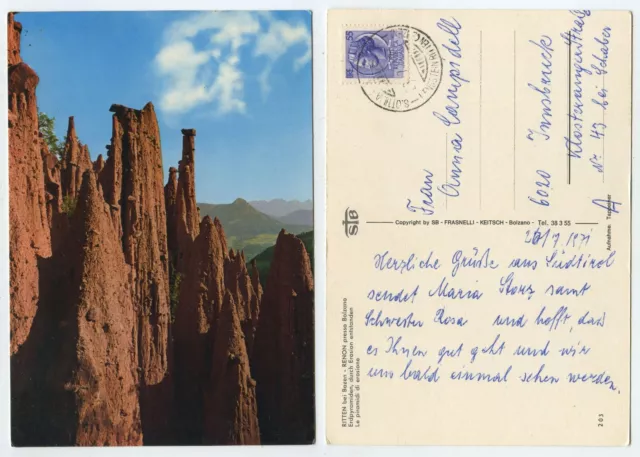 Frau
Anna Campidell
6020 Innsbruck
Klosterangerstraße
No 43 bei Schaber
A
Copyright by SB - FRASNELLI - KEITSCH - Bolzano - Tel. 38 3 55
Aufnahme:
SB
RITTEN bei Bozen - RENON presso Bolzano
Erdpyramiden, durch Erosion entstanden
Le piramidi di erosione
203
26/7 1971
Herzliche Grüße aus Südtirol
sendet Maria Storz samt
Schwester Rosa und hofft, daß
es Ihnen gut geht und wir
uns bald einmal sehen werden.